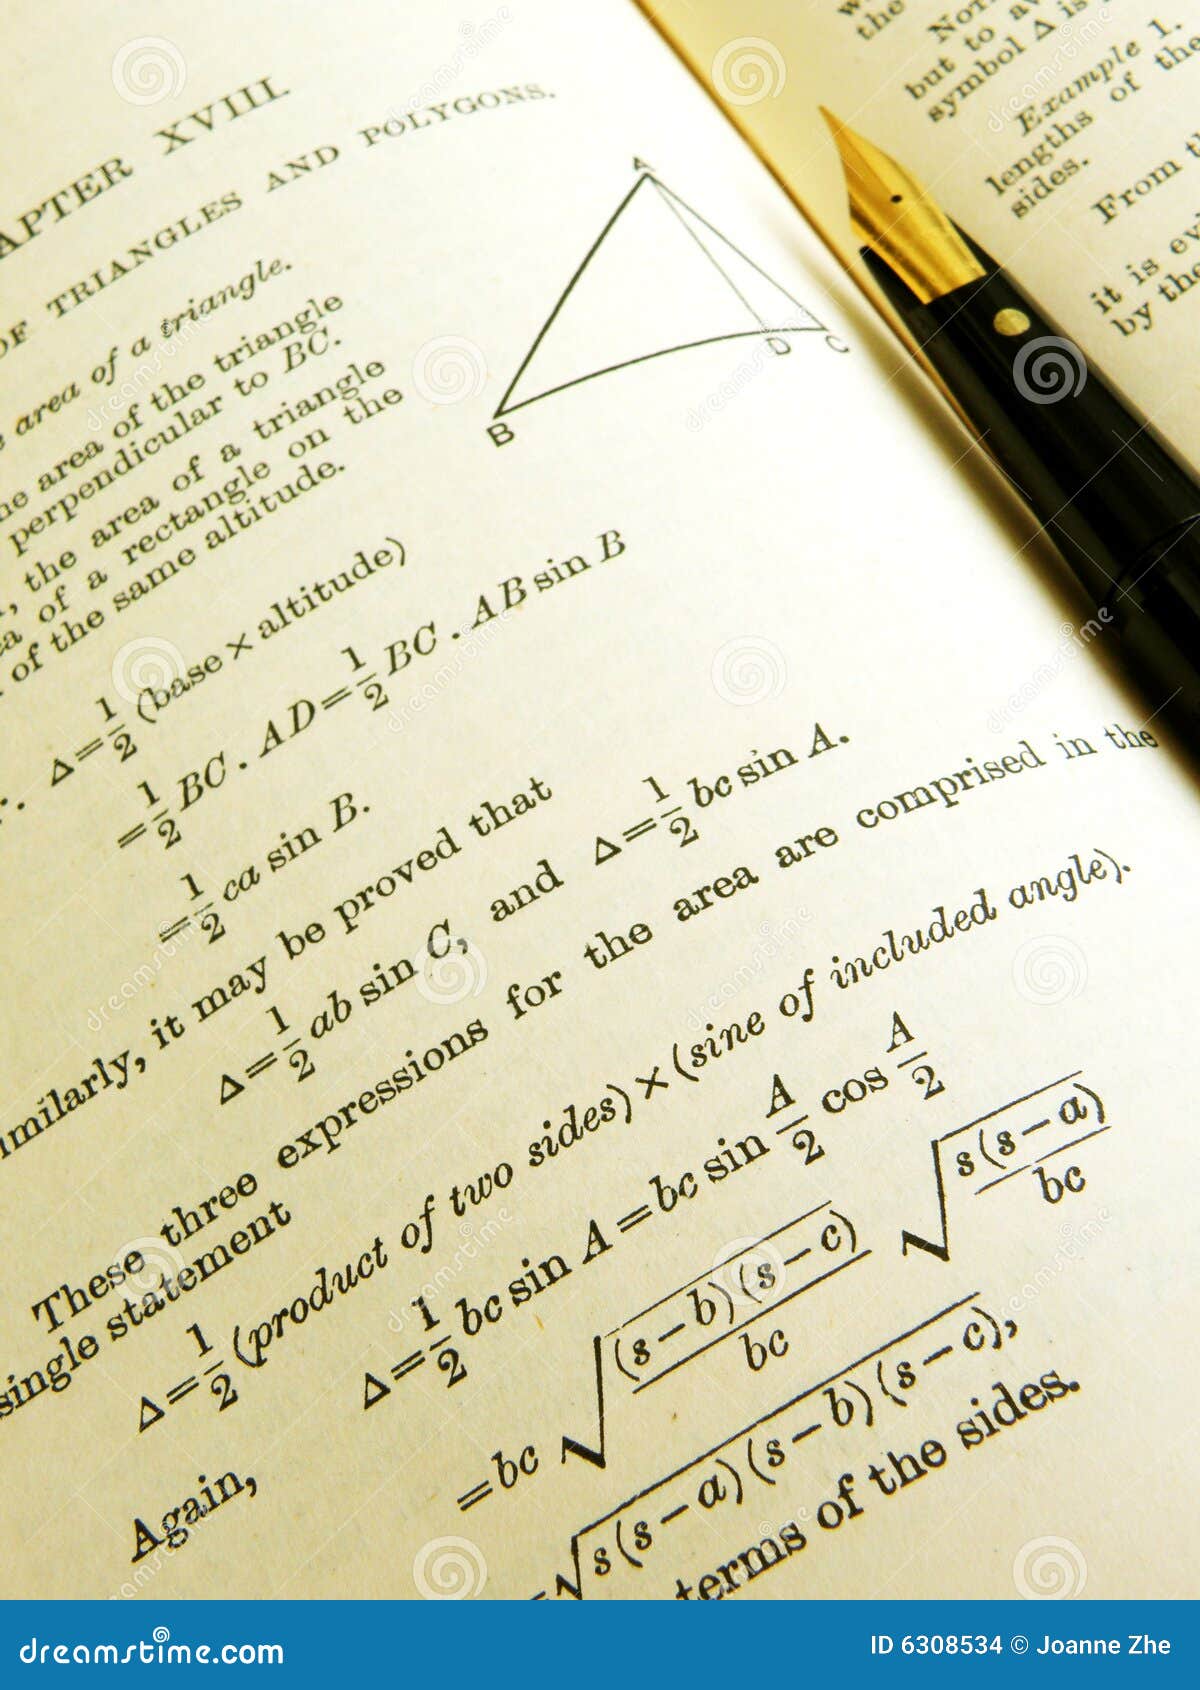 APTER XVIII
OF TRIANGLES AND POLYGONS.
area of a triangle.
the area of the triangle
perpendicular to BC.
the area of a triangle
of a rectangle on the
of the same altitude.
A
B
D
C
Δ=1/2 (base × altitude)
=1/2 BC . AD=1/2 BC . AB sin B
=1/2 ca sin B.
imilarly, it may be proved that
Δ=1/2 ab sin C, and Δ=1/2 bc sin A.
These three expressions for the area are comprised in the
single statement
Δ=1/2 (product of two sides) × (sine of included angle).
Again, Δ=1/2 bc sin A=bc sin A/2 cos A/2
=bc √((s−b)(s−c)/bc) √(s(s−a)/bc)
=√s(s−a)(s−b)(s−c),
terms of the sides.
the
but to
symbol Δ is
Example 1.
lengths of the
sides.
From
it is
by the
dreamstime.com
ID 6308534 © Joanne Zhe